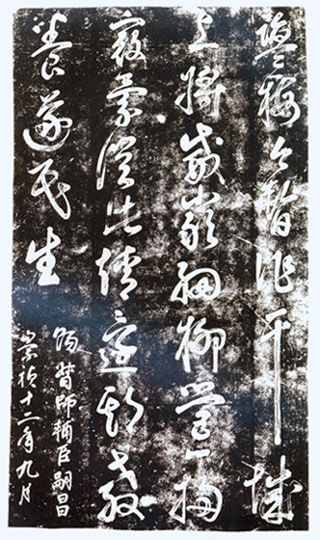 鹽梅今暫作干城
上將威嚴細柳營一掃
寇氛從此靖還期教
養遂民生
賜督師輔臣嗣昌
崇禎十二年九月